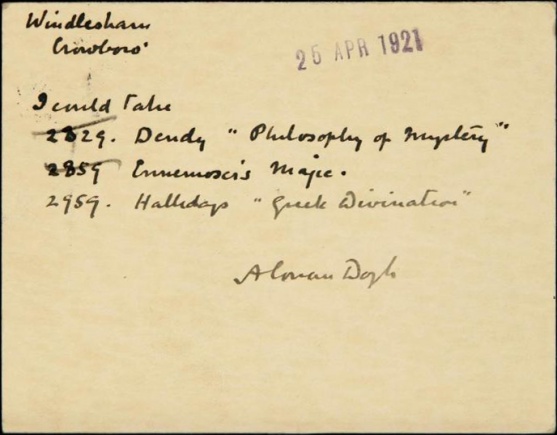 Windlesham
Crowboro'
25 APR 1921
I could take
2829. Dendy "Philosophy of Mystery"
2859 Ennemoser's Magic.
2959. Hallidays "Greek Divination"
A Conan Doyle